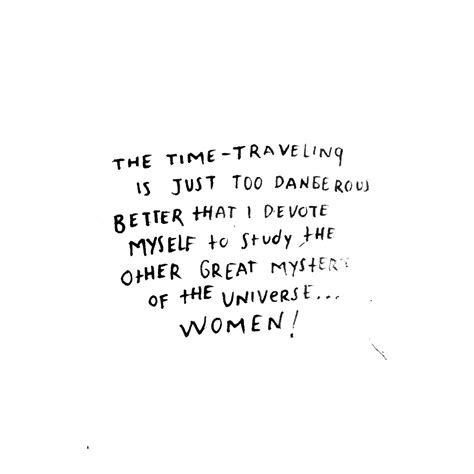 THE TIME-TRAVELING
IS JUST TOO DANGEROUS
BETTER THAT I DEVOTE
MYSELF to study THE
OTHER GREAT MYSTERY
OF THE UNIVERSE...
WOMEN!